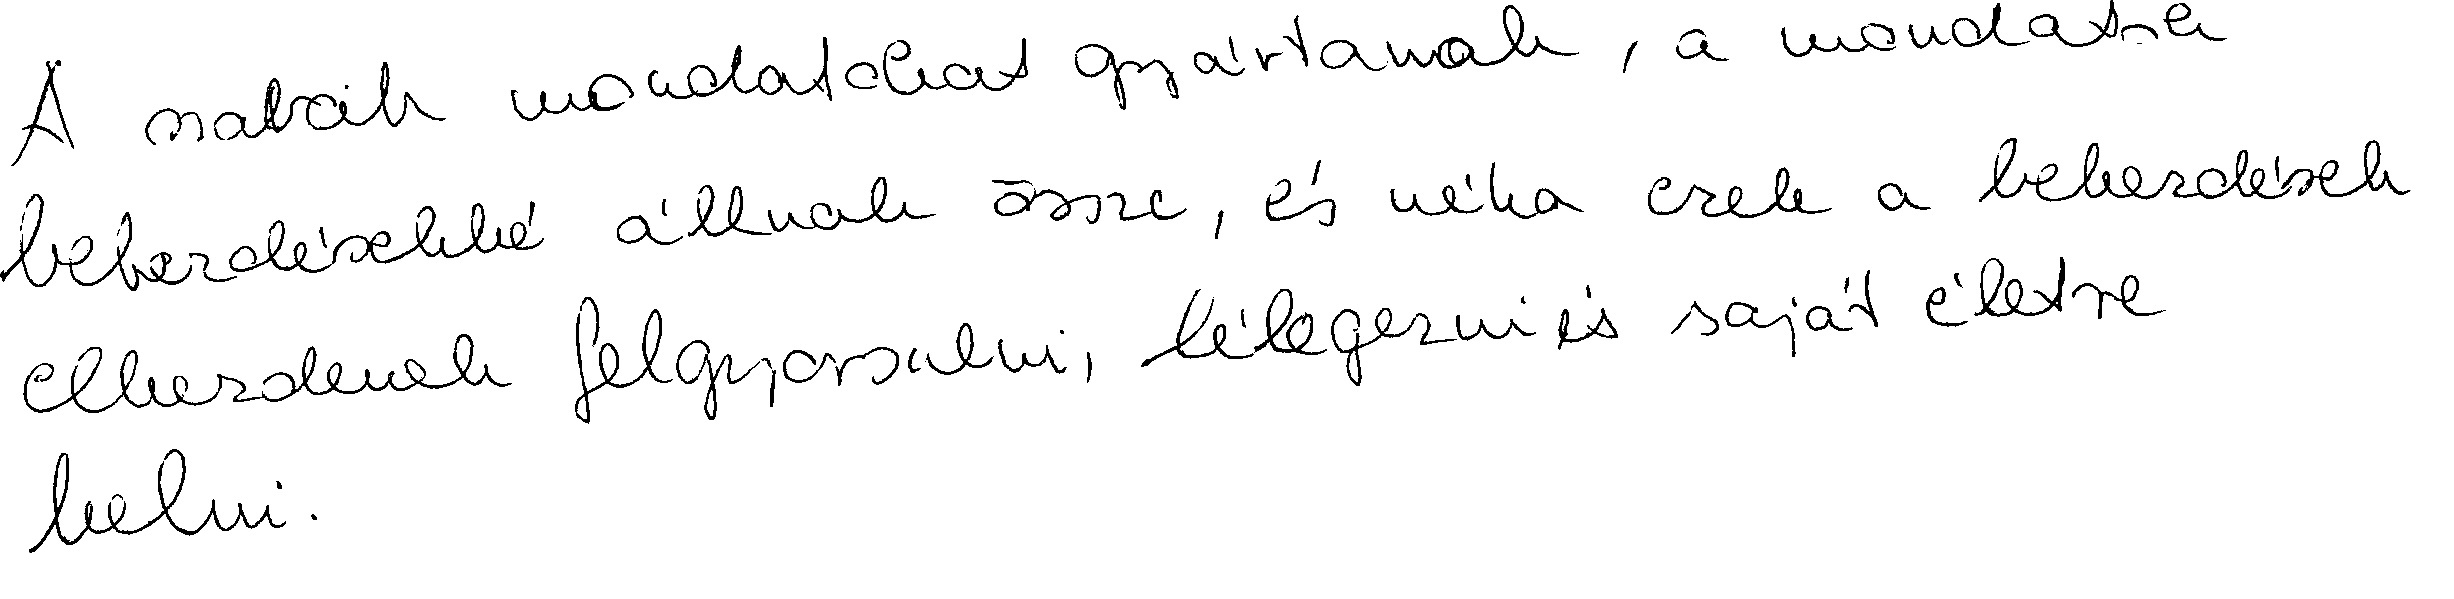 A szavak mondatokat gyártanak, a mondatok
bekezdésekké állnak össze, és néha ezek a bekezdések
elkezdenek felgyorsulni, lélegezni és saját életre
kelni.